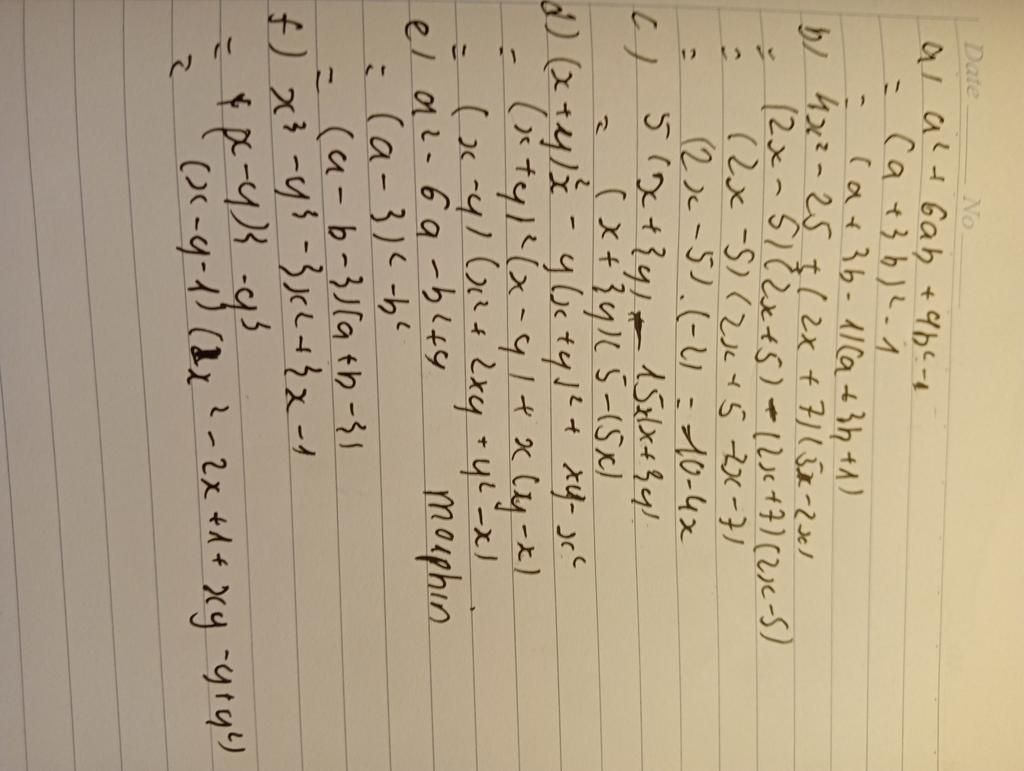 Date No
a) a² + 6ab + 9b² - 1
= (a + 3b)² - 1
= (a + 3b - 1)(a + 3b + 1)
b) 4x² - 25 + (2x + 7)(5x - 2x)
= (2x - 5)(2x + 5) - (2x + 7)(2x - 5)
= (2x - 5)(2x + 5 - 2x - 7)
= (2x - 5).(-2) = 10 - 4x
c) 5(x + 3y) - 15x(x + 3y)
= (x + 3y)(5 - 15x)
d) (x + y)²x - y(x + y)² + xy - x²
= (x + y)²(x - y) + x(y - x)
= (x - y)(x² + 2xy + y² - x)
e) a² - 6a - b² + 9 morphin
= (a - 3)² - b²
= (a - b - 3)(a + b - 3)
f) x³ - y³ - 3x² + 3x - 1
= (x - y)³ - y³
= (x - y - 1)(x² - 2x + 1 + xy - y + y²)